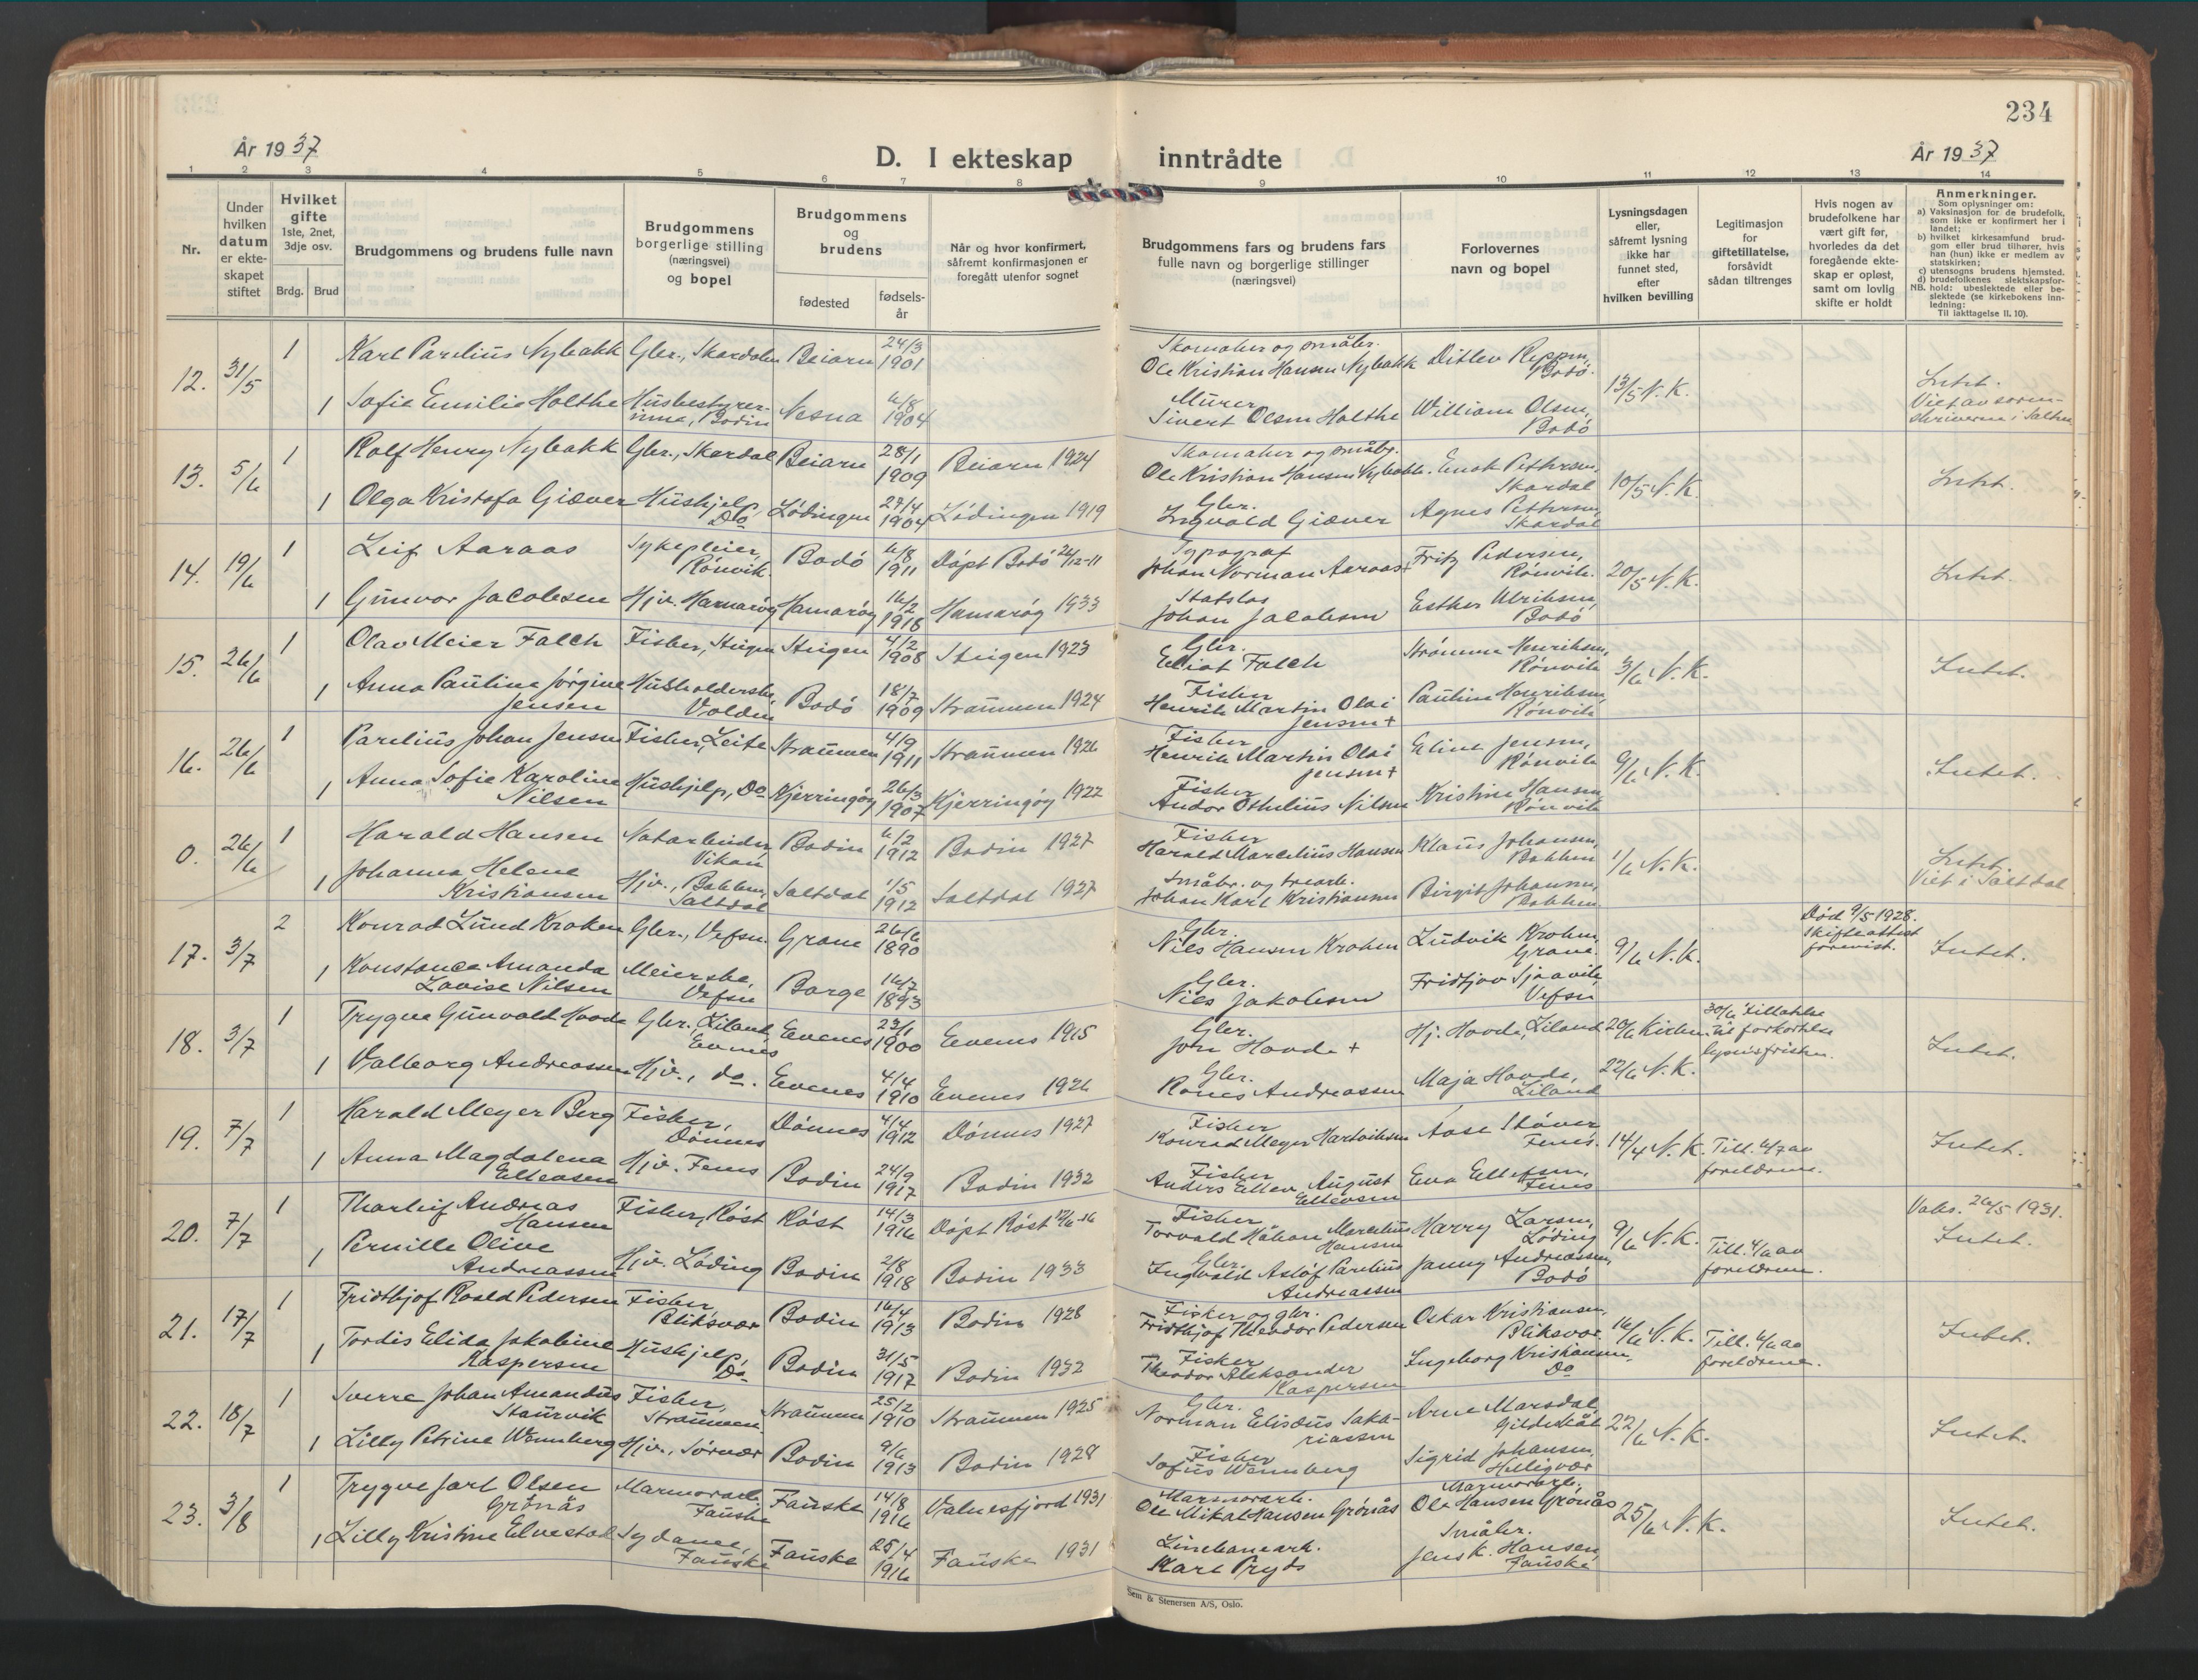 234
År 1937
D. I ekteskap inntrådte
År 1937
1 2 3 4 5 6 7 8 9 10 11 12 13 14
Nr.
Under hvilken datum er ekteskapet stiftet
Hvilket gifte 1ste, 2net, 3dje osv.
Brdg. Brud
Brudgommens og brudens fulle navn
Brudgommens borgerlige stilling (næringsvei) og bopel
Brudgommens og brudens
fødested
fødselsår
Når og hvor konfirmert, såfremt konfirmasjonen er foregått utenfor sognet
Brudgommens fars og brudens fars fulle navn og borgerlige stillinger (næringsvei)
Forlovernes navn og bopel
Lysningsdagen eller, såfremt lysning ikke har funnet sted, efter hvilken bevilling
Legitimasjon for giftetillatelse, forsåvidt sådan tiltrenges
Hvis nogen av brudefolkene har vært gift før, hvorledes da det foregående ekteskap er opløst, samt om lovlig skifte er holdt
Anmerkninger.
Som oplysninger om:
a) Vaksinasjon for de brudefolk, som ikke er konfirmert her i landet;
b) hvilket kirkesamfund brudgom eller brud tilhører, hvis han (hun) ikke er medlem av statskirken;
c) utensogns brudens hjemsted.
d) brudefolkenes slektskapsforhold: ubeslektede eller beslektede (se kirkebokens innledning:
NB.
Til iakttagelse II. 10).
12. 31/5 1 Karl Parelius Nybakk Gbr., Skardalen Beiarn 24/3 1901 Skomaker og småbr. Ole Kristian Hansen Nybakk Ditlev Reppen, Bodö. 13/5 N. K. Intet. Viet av sorenskriveren i Salten
1 Sofie Emilie Holthe Husbestyrerinne, Bodin Nesna 6/8 1904 Murer Sivert Olsen Holthe William Olsen, Bodö
13. 5/6 1 Rolf Henry Nybakk Gbr., Skardal Beiarn 28/1 1909 Beiarn 1924 Skomaker og småbr. Ole Kristian Hansen Nybakk. Enok Pettersen, Skardal 10/5 N. K. Intet.
1 Olga Kristofa Giæver Hushjelp, Do Lödingen 27/4 1904 Lödingen 1919 Gbr. Ingvald Giæver Agnes Pettersen, Skardal
14. 19/6 1 Leif Aaraas Sykepleier, Rönvik. Bodö 6/8 1911 Döpt Bodö 26/12-11 Typograf Johan Norman Aaraas+ Fritz Pedersen, Rönvik. 20/5 N. K. Intet.
1 Gunvor Jacobsen Hjv. Hamaröy Hamaröy 16/2 1918 Hamaröy 1933 Statslos Johan Jacobsen Esther Ulriksen, Bodö
15. 26/6 1 Olav Meier Falch Fisker, Steigen Steigen 4/2 1908 Steigen 1923 Gbr. Eliot Falch Strömme Henriksen, Rönvik 3/6 N. K. Intet.
1 Anna Pauline Jörgine Jensen Husholderske, Valdin Bodö 18/7 1909 Straumen 1924 Fisker Henrik Martin Olai Jensen+ Pauline Henriksen, Rönvik
16. 26/6 1 Parelius Johan Jensen Fisker, Leite Straumen 4/9 1911 Straumen 1926 Fisker Henrik Martin Olai Jensen+ Eline Jensen, Rönvik 9/6 N. K. Intet.
1 Anna Sofie Karoline Nilsen Hushjelp, Do Kjerringöy 26/3 1907 Kjerringöy 1922 Fisker Andor Othelius Nilsen Kristine Hansen, Rönvik
0. 26/6 1 Harald Hansen Notarbeider, Vikan Bodin 6/2 1912 Bodin 1927 Fisker Harald Marcelius Hansen Klaus Johansen, Bakken 1/6 N. K. Intet. Viet i Saltdal
1 Johanna Helene Kristiansen Hjv., Bakken, Saltdal Saltdal 1/5 1912 Saltdal 1927 Småbr. og trearb. Johan Karl Kristiansen Birgit Johansen, Bakken
17. 3/7 2 Konrad Lund Kroken Gbr., Vefsn. Grane 26/6 1890 Gbr. Nils Hansen Kroken Ludvik Kroken, Grane. 9/6 N. K. Död 9/5 1928. Skifteattest forevist. Intet.
1 Konstance Amanda Lovise Nilsen Meierske, Vefsn Borge 16/7 1893 Gbr. Nils Jakobsen Fridtjov Sjaavik, Vefsn
18. 3/7 1 Trygve Gunvald Hovde Gbr., Liland, Evenes Evenes 23/1 1900 Evenes 1915 Gbr. Jon Hovde + Hj. Hovde, Liland 20/6 Kirken 30/6 Tillatelse til forkortelse lysn.fristen. Intet.
1 Valborg Andreassen Hjv., do. Evenes 4/4 1910 Evenes 1926 Gbr. Rones Andreassen Maja Hovde, Liland 22/6 N. K.
19. 7/7 1 Harald Meyer Berg Fisker, Dönnes Dönnes 4/4 1912 Dönnes 1927 Fisker Konrad Meyer Hartviksen Aase Stöver Fenes. 14/4 N. K. Till. 4/7 av foreldrene. Intet.
1 Anna Magdalena Ellevsen Hjv. Fenes Bodin 24/9 1917 Bodin 1932 Fisker Anders Ellev August Ellevsen Eva Ellefsen, Fenes
20. 7/7 1 Tharleif Andreas Hansen Fisker, Röst Röst 14/3 1916 Döpt Röst 12/6-16 Fisker Torvald Håkon Marcelius Hansen Harry Larsen, Löding 9/6 N. K. Vaks. 26/5 1931. Intet.
1 Pernille Olive Andreassen Hjv. Löding Bodin 2/8 1918 Bodin 1933 Gbr. Ingvald Astof Parelius Andreassen Janny Andreassen, Bodö Till. 4/6 av foreldrene.
21. 17/7 1 Fridthjof Roald Pedersen Fisker, Bliksvær Bodin 16/4 1913 Bodin 1928 Fisker og gbr. Fridthjof Theodor Pedersen Oskar Kristiansen, Bliksvær. 16/6 N. K. Till. 4/6 av foreldrene. Intet.
1 Tordis Elida Jakobine Kaspersen Hushjelp, Do Bodin 31/5 1917 Bodin 1932 Fisker Theodor Aleksander Kaspersen Ingeborg Kristiansen, Do
22. 18/7 1 Sverre Johan Amandus Staurvik Fisker, Straumen. Straumen 25/2 1910 Straumen 1925 Gbr. Norman Elisæus Sakariassen Arne Marsdal, Gildeskål 22/6 N. K. Intet.
1 Lilly Petrine Wennberg Hjv., Sørvær Bodin 9/6 1913 Bodin 1928 Fisker Sofus Wennberg Sigrid Johansen, Helligvær
23. 3/8 1 Trygve Jarl Olsen Grönås Marmorarb., Fauske Fauske 14/8 1916 Valnesfjord 1931 Marmorarb. Ole Mikal Hansen Grönås Marmorarb. Ole Hansen Grönås 25/6 N. K. Intet.
1 Lilly Kristine Elvestad Sydame, Fauske Fauske 25/4 1916 Fauske 1931 Linebanearb. Karl Pryds Småbr. Jens K. Hansen, Fauske
Sem & Stenersen A/S, Oslo.